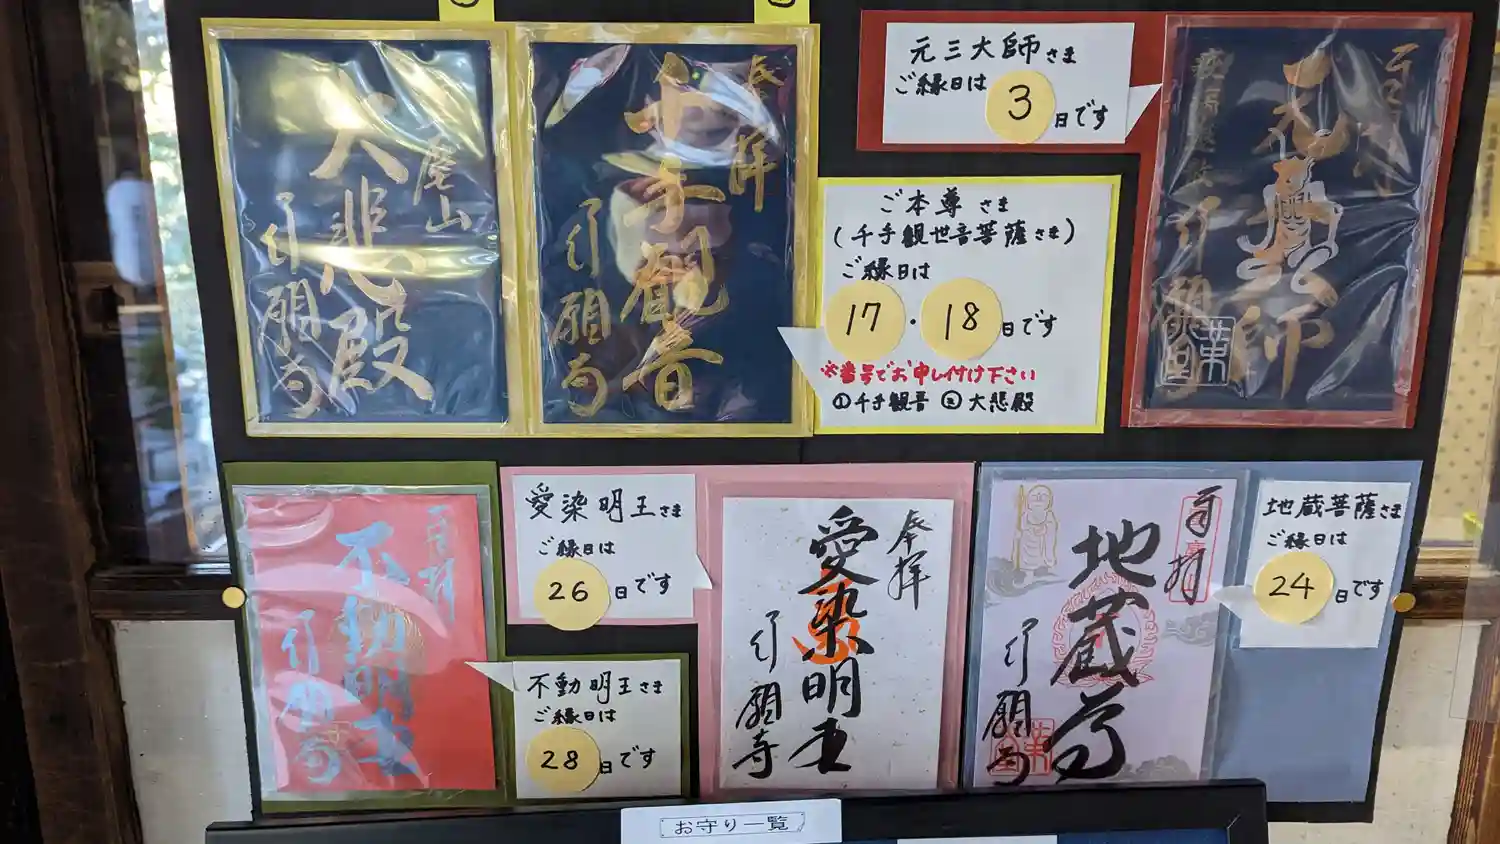 大悲殿
引願寺
奉拝
千手観音
引願寺
元三大師さま
ご縁日は
3日です
ご本尊さま
(千手観世音菩薩さま)
ご縁日は
17・18日です
※番号でお申し付け下さい
①千手観音 ②大悲殿
元三大師
不動明王
引願寺
愛染明王さま
ご縁日は
26日です
不動明王さま
ご縁日は
28日です
奉拝
愛染明王
引願寺
地蔵尊
引願寺
地蔵菩薩さま
ご縁日は
24日です
お守り一覧